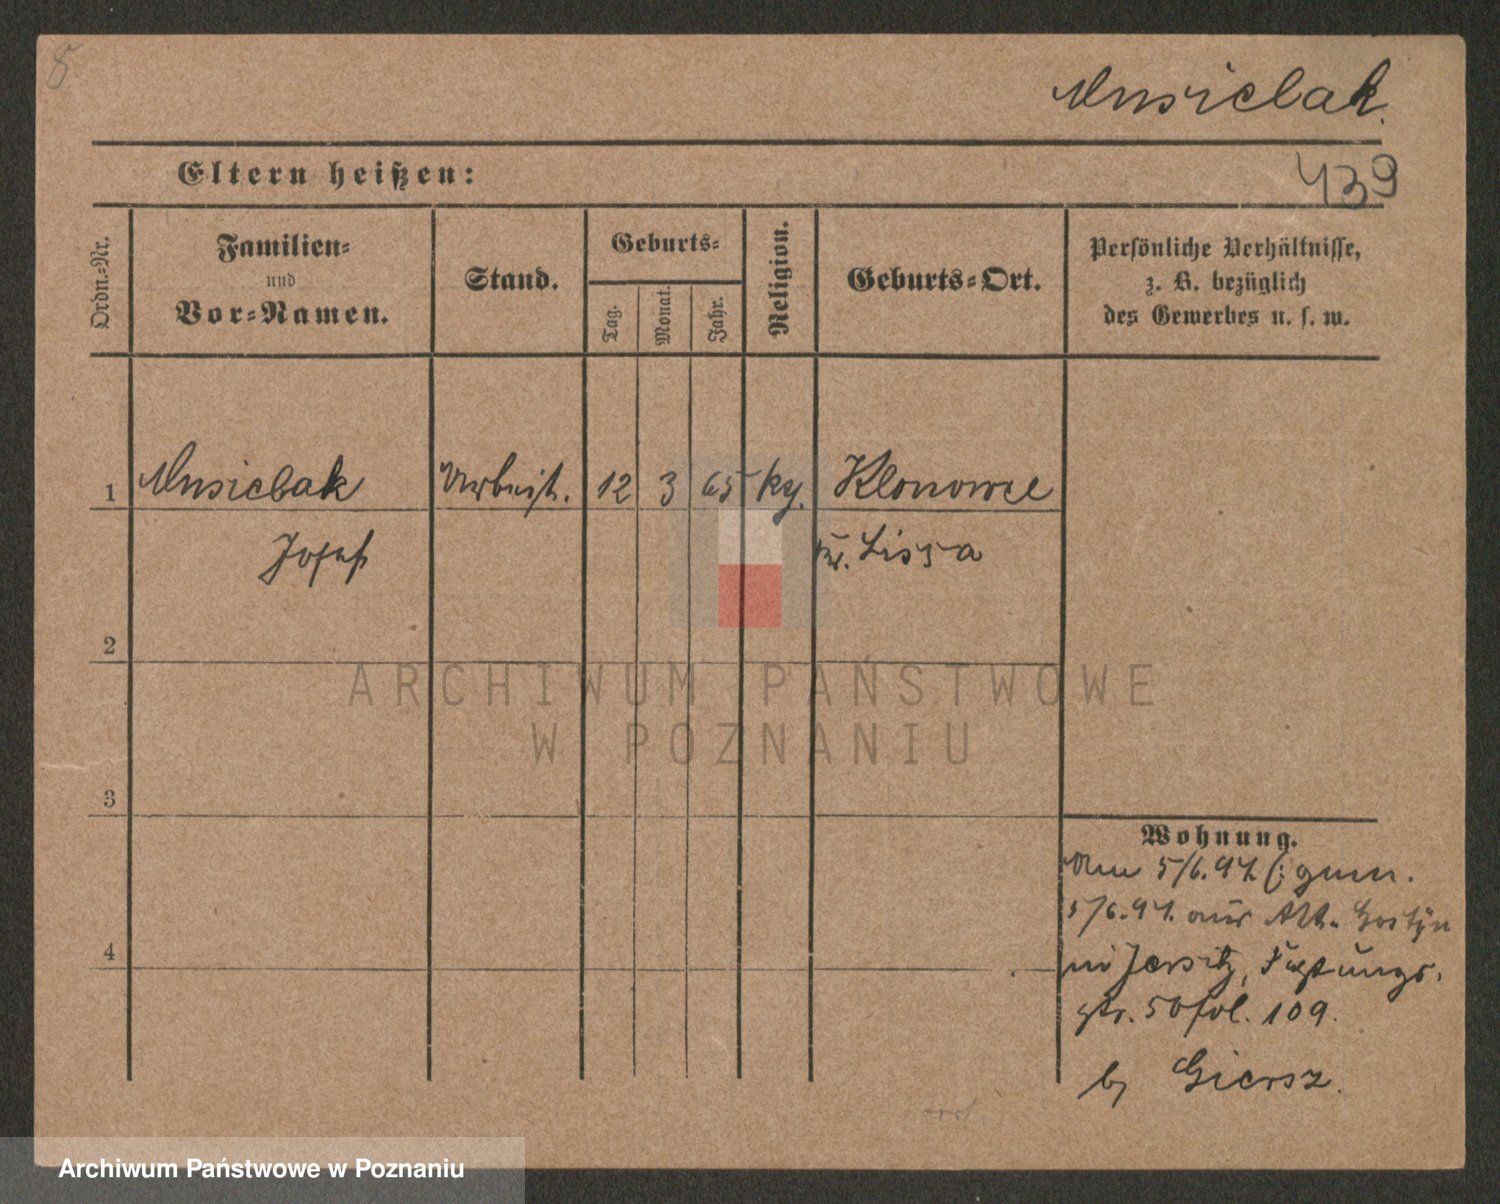 8
Musielak.
Eltern heißen:
439
Ordn.-Nr.
Familien-
und
Vor-Namen.
Stand.
Geburts-
Tag.
Monat.
Jahr.
Religion.
Geburts-Ort.
Persönliche Verhältnisse,
z. B. bezüglich
des Gewerbes u. s. w.
1 Musielak Arbeit. 12 3 65 kg. Klonowce
Josef Kr. Lissa
2
ARCHIWUM PAŃSTWOWE
W POZNANIU
3
Wohnung.
5/6.97. (: gem.
5/6.97. aus Alt. Gostyn
in Jersitz, Festungs.
str. 50 fol. 109.
4
b/ Giersz.
Archiwum Państwowe w Poznaniu